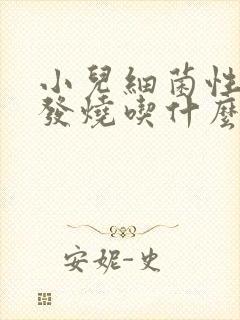 小兒細菌性
發燒喫什麼
安妮-史